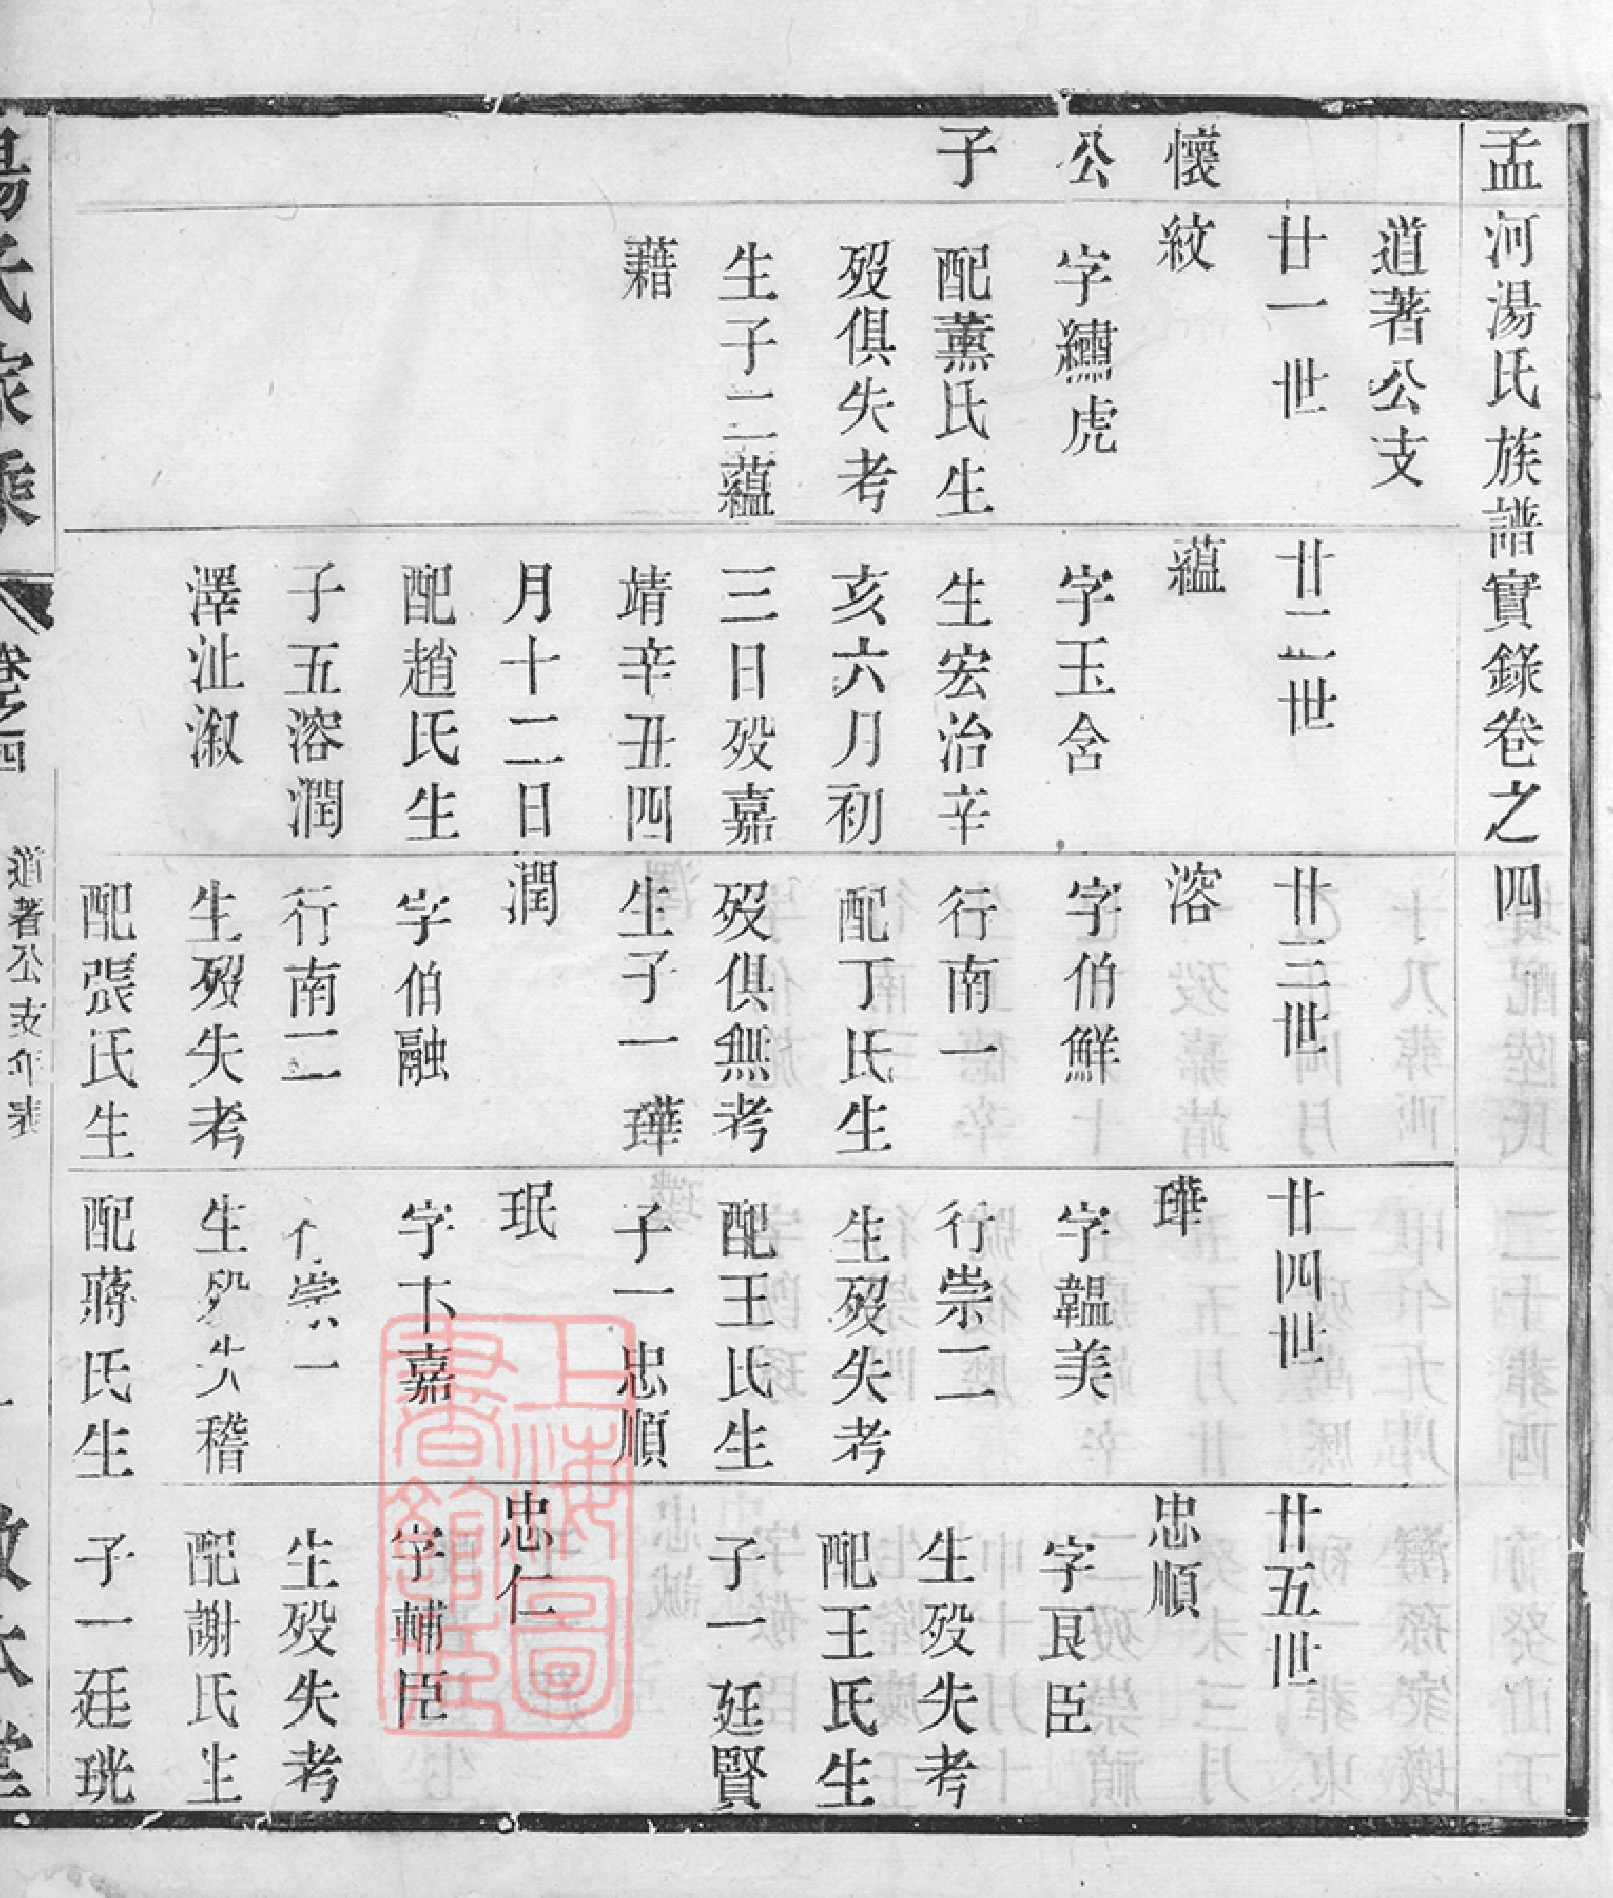 孟河湯氏族譜實錄卷之四
道著公支
廿一世
懷
紋
公
字繡虎
子
配薰氏生
歿俱失考
生子二蘊
藉
廿二世
蘊
字玉含
生宏治辛
亥六月初
三日歿嘉
靖辛丑四
月十二日
配趙氏生
子五溶潤
澤沚漵
廿三世
溶
字伯鮮
行南一
配丁氏生
歿俱無考
生子一 瑋
潤
字伯融
行南二
生歿失考
配張氏生
廿四世
瑋
字韞美
行崇二
生歿失考
配王氏生
子一 忠順
珉
字卞嘉
行崇一
生歿失稽
配蔣氏生
廿五世
忠順
字艮臣
生歿失考
配王氏生
子一廷賢
忠仁
字輔臣
生歿失考
配謝氏生
子一廷珖
湯氏家乘
卷之四
道著公支世表
敬本堂
上海圖
書館藏